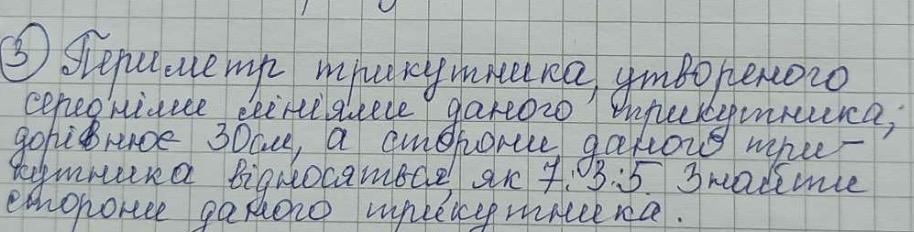 3 Периметр трикутника, утвореного
середніми лініями даного трикутника,
дорівнює 30см, а сторони даного три-
кутника відносяться, як 7:3:5. Знайти
сторони даного трикутника.